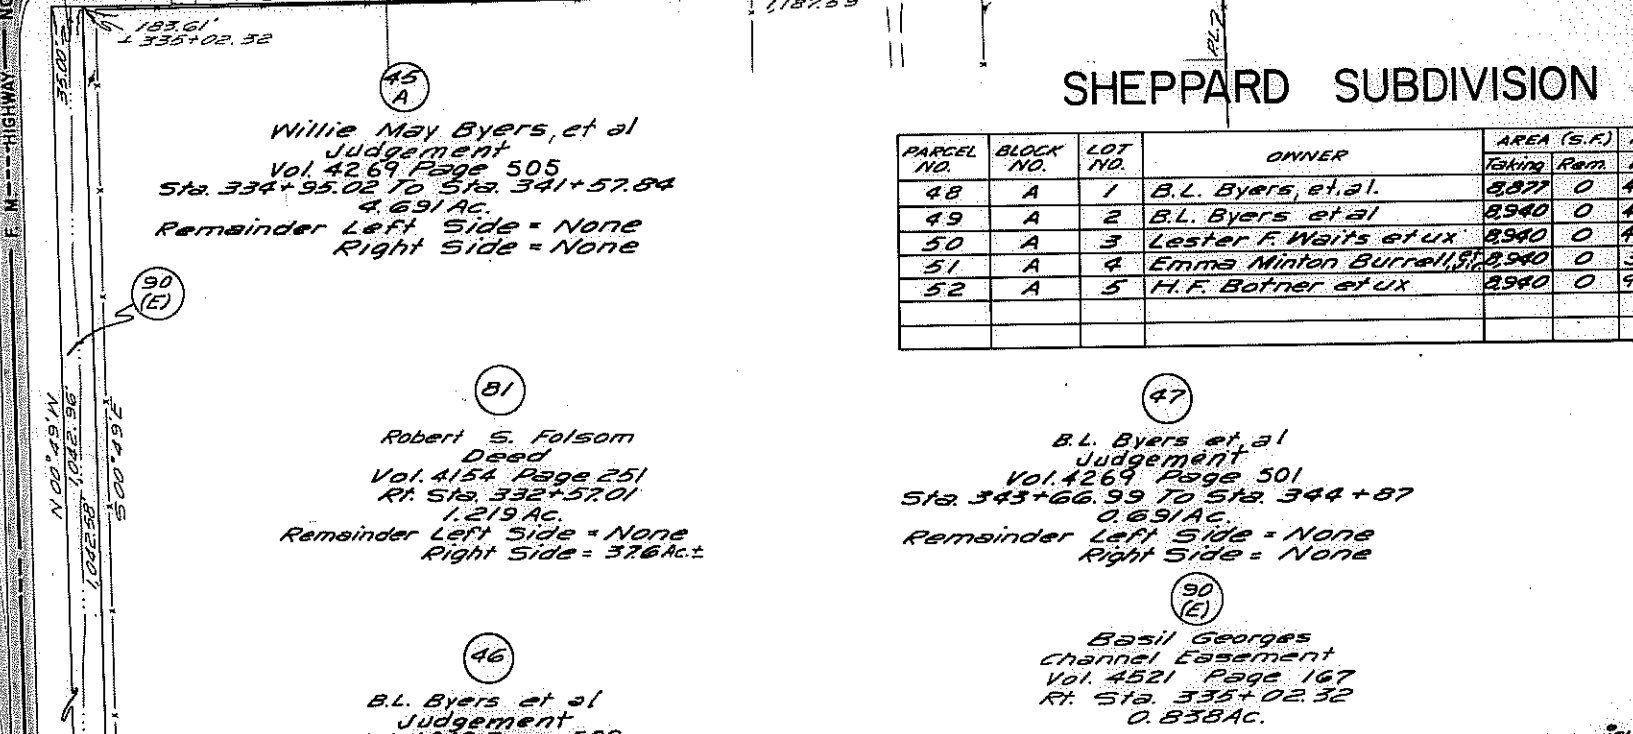 F. M. HIGHWAY NO
183.61'
± 335+02.32
1,187.59
P.L.
35.00'
45
A
Willie May Byers, et al
Judgement
Vol. 4269 Page 505
Sta. 334+95.02 To Sta. 341+57.84
4.691 Ac.
Remainder Left Side = None
Right Side = None
90
(E)
N 00°49'W
1,042.96'
1,042.58'
S 00°49'E
81
Robert S. Folsom
Deed
Vol. 4154 Page 251
Rt. Sta. 332+57.01
1.219 Ac.
Remainder Left Side = None
Right Side = 37.6 Ac.±
46
B.L. Byers et al
Judgement
SHEPPARD SUBDIVISION
PARCEL NO. BLOCK NO. LOT NO. OWNER AREA (S.F.)
Taking Rem.
48 A 1 B.L. Byers, et.al. 8,877 0 4
49 A 2 B.L. Byers et al 8,940 0 4
50 A 3 Lester F. Waits et ux 8,940 0 4
51 A 4 Emma Minton Burrell, 8,940 0
52 A 5 H.F. Botner et ux 8,940 0
47
B.L. Byers et al
Judgement
Vol. 4269 Page 501
Sta. 343+66.99 To Sta. 344+87
0.691 Ac.
Remainder Left Side = None
Right Side = None
90
(E)
Basil Georges
Channel Easement
Vol. 4521 Page 167
Rt. Sta. 335+02.32
0.838 Ac.